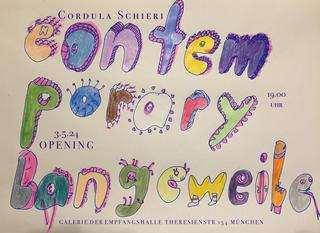 CORDULA SCHIERI
Contem
porory
19.00
UHR
3.5.24
OPENING
Langeweile
GALERIE DER EMPFANGSHALLE THERESIENSTR 154 MÜNCHEN